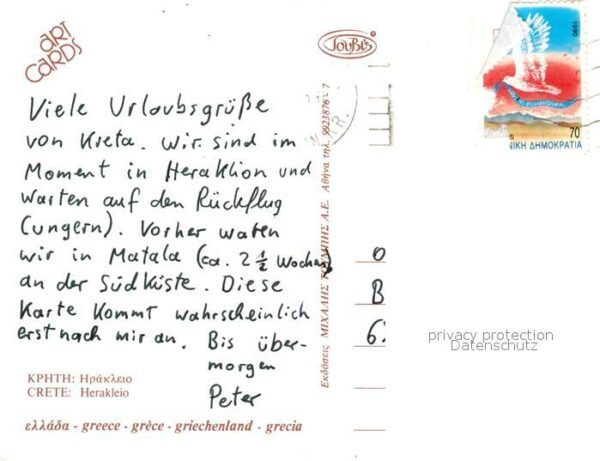 ART
CARDS
Viele Urlaubsgrüße
von Kreta. Wir sind im
Moment in Heraklion und
Warten auf den Rückflug
(ungern). Vorher waren
wir in Matala (ca. 2 ½ Wochen)
an der Südküste. Diese
Karte kommt wahrscheinlich
erst nach mir an. Bis über-
morgen
Peter
ΚΡΗΤΗ: Ηράκλειο
CRETE: Herakleio
ελλάδα - greece - grèce - griechenland - grecia
Εκδόσεις ΜΙΧΑΛΗΣ Α.Ε. Αθήνα τηλ. 9923876 - 7
1990
70
ΝΙΚΗ ΔΗΜΟΚΡΑΤΙΑ
O
B
6
privacy protection
Datenschutz